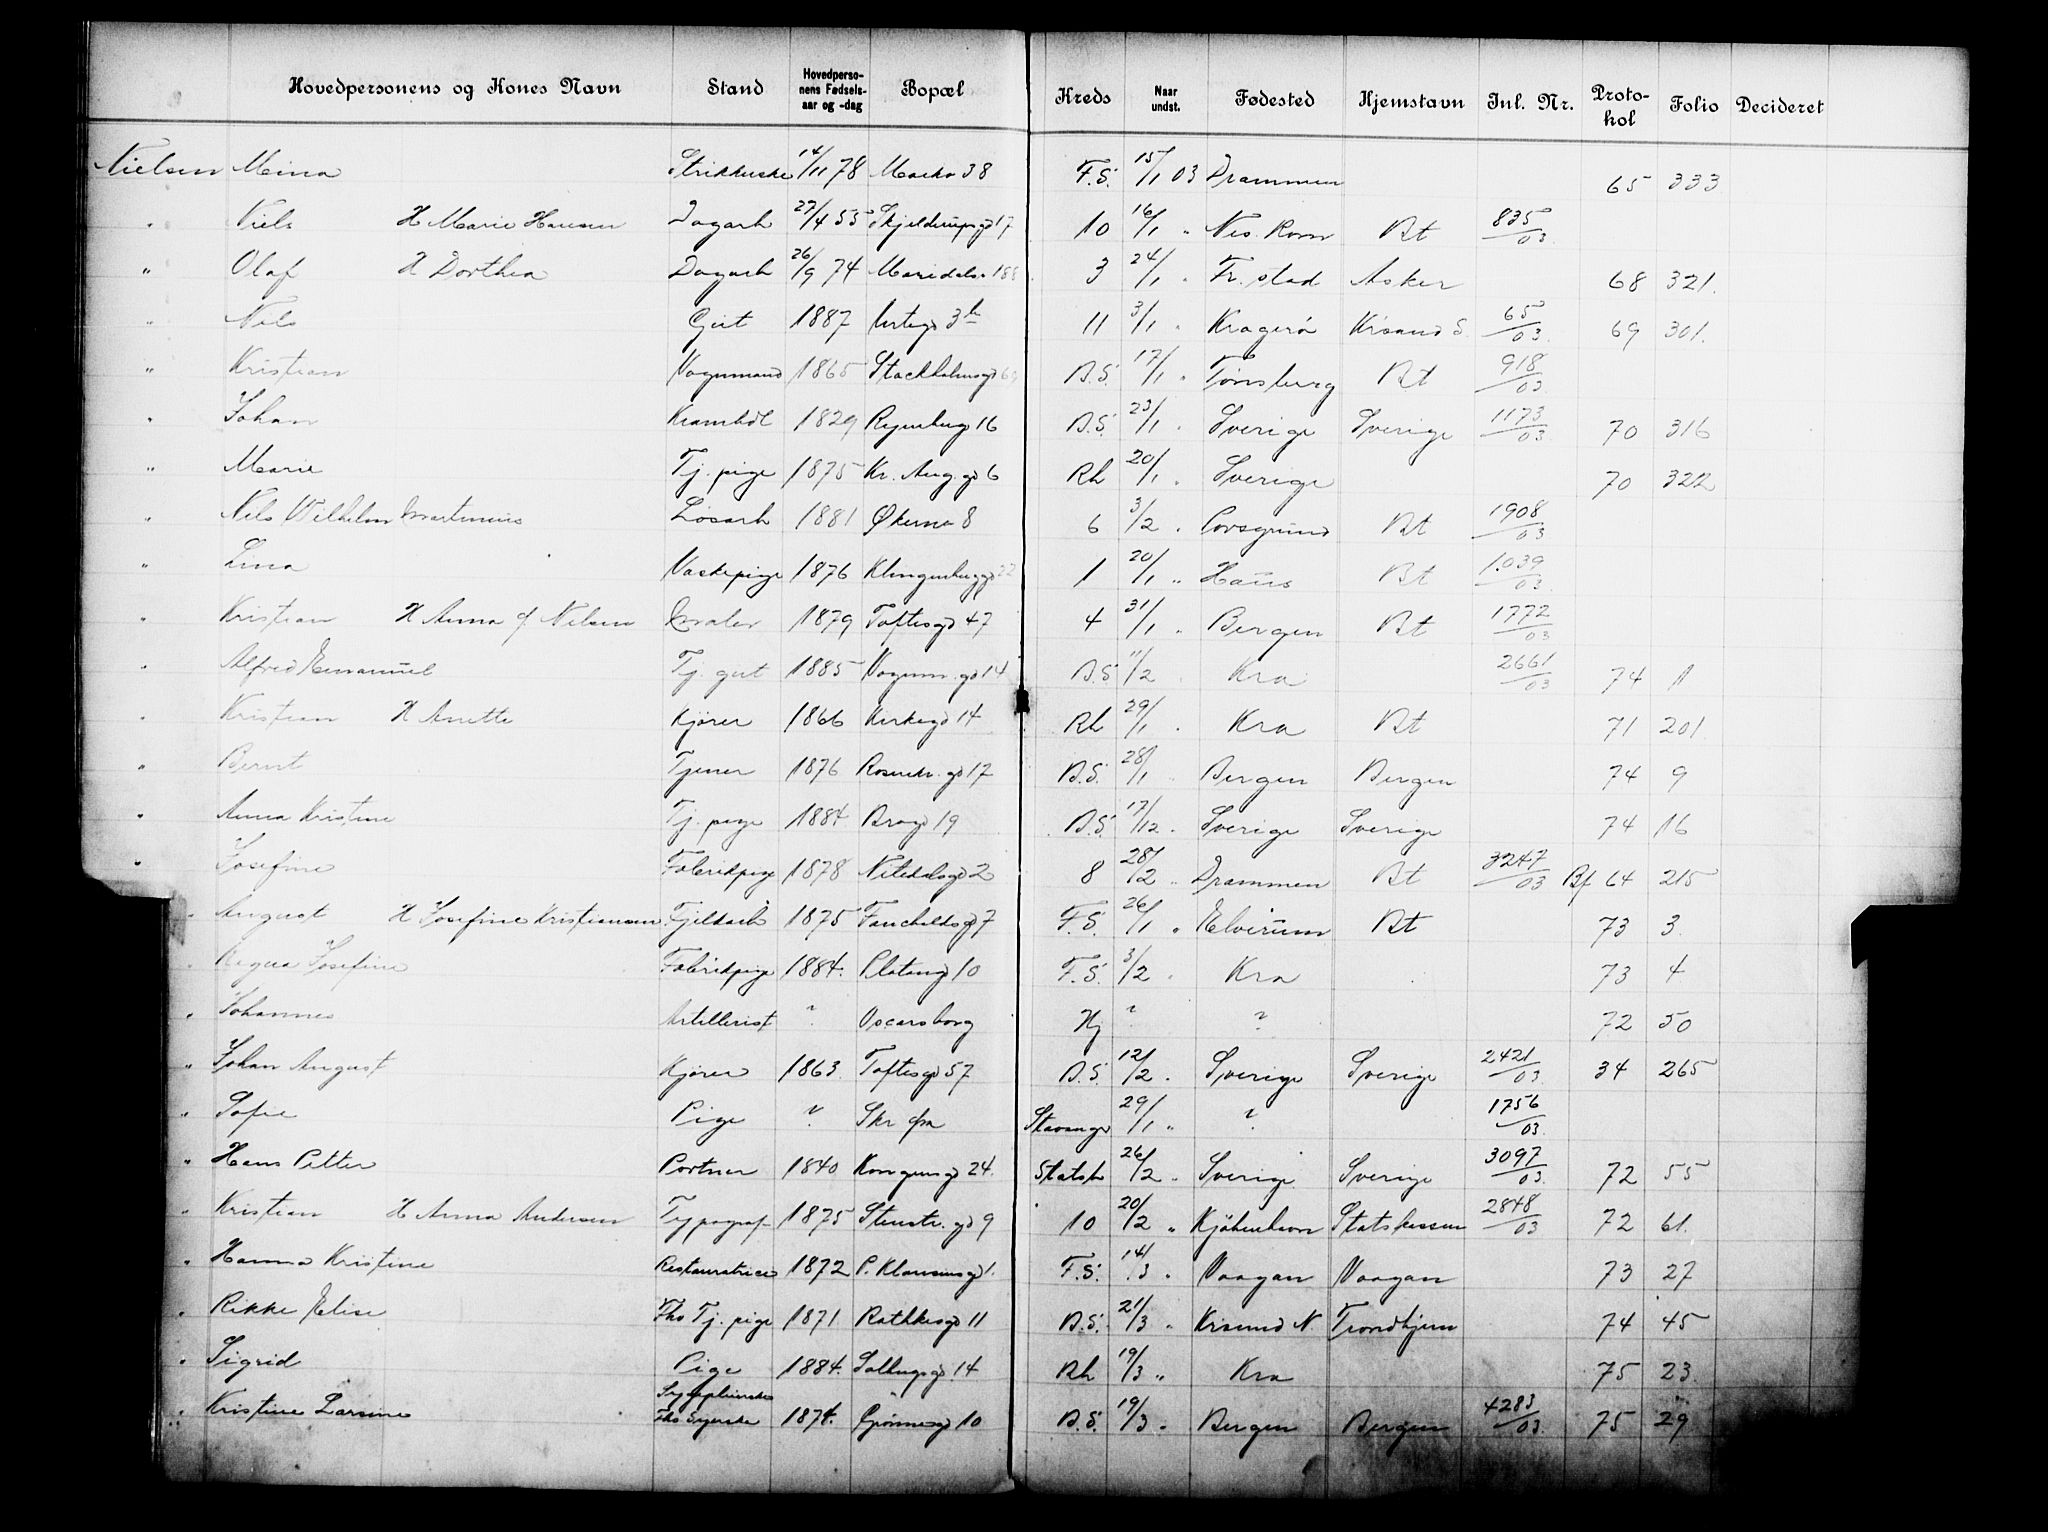 Hovedpersonens og Kones Navn Stand Hovedperso-nens Fødsels-aar og -dag Bopæl Kreds Naar undst. Fødested Hjemstavn Inl. Nr. Proto-kol Folio Decideret
Nielsen Mina 14/11 78 38 F.S. 15/1 03 Drammen 65 333
" Niels H Marie Hansen Dagarb 27/4 55 Skjelderupsgd 17 10 16/1 " Nes. Rom Bt 835/03
" Olaf H Dorthea Dagarb 26/9 74 Maridalsv 188 3 24/1 " Fr. stad Asker 68 321.
" Nils Gut 1887 Urtegd 3 b 11 3/1 " Kragerø Krsand S. 65/03 69 301.
" Kristian Vognmand 1865 Stockholmsgd B.S. 17/1 " Tønsberg Bt 918/03
" Johan Kramhdl 1829 Ryenbergd 16 B.S. 23/1 " Sverige Sverige 1173/03 70 316
" Marie Tj. pige 1875 Kr. Aug. gd 6 Rh 20/1 " Sverige 70 322
" Nils Wilhelm Martinius Løsarb 1881 Økernv 8 6 3/2 " Porsgrund Bt 1908/03
" Lina Vaskepige 1876 Klingenbeggd 22 1 20/1 " Haus Bt 1039/03
" Kristian H Anna f Nilsen Maler 1879 Toftesgd 47 4 31/1 " Bergen Bt 1772/03
" Alfred Emanuel Tj. gut 1885 Vognm. gd 14 B.S 11/2 Kra 2661/03 74 1
" Kristian H Anette Kjører 1866 Kirkegd 14 Rh 29/1 " Kra Bt 71 201.
" Bernt Tjener 1876 Rosenkr. gd 17 B.S. 28/1 " Bergen Bergen 74 9
" Anna Kristine Tj. pige 1884 Brogd 19 B.S. 17/12 " Sverige Sverige 74 16
" Josefine Fabrikpige 1878 Nitedalsgd 2 8 28/2 " Drammen Bt 3247/03 Bf 64 215
" August H Josefine Kristiansen 1875 Fauchaldsgd 7 F.S. 26/1 " Elverum Bt 73 3.
" Josefine Fabrikpige 1884. Platougd 10 F.S. 3/2 " Kra 73 4
" Johannes Artillerist ? Oscarsborg Hj ? ? 72 50
" Johan August Kjører 1863. Toftesgd 57 B.S. 12/2 " Sverige Sverige 2421/03 34 265
" Sofie Pige ? Skr fra Stavanger 29/1 " ? 1756/03.
" Hans Petter Portner 1840 Kongensgd 24. Statsb 26/2 " Sverige Sverige 3097/03 72 55
" Kristian H Anna Andersen Typograf 1875 Stenstr. gd 9 10 20/2 " Kjøbenhavn Statskassen 2848/03 72 61.
" Hanna Kristine Restauratrice 1872 P. Klausensgd 1. F.S. 14/3 " Vaagan Vaagan 73 27
" Rikke Elise Fhv Tj. pige 1871 Rathkesgd 11 B.S. 21/3 " Krsund N. Trondhjem 74 45
" Sigrid Pige 1884. 14 Rh 19/3 " Kra 75 23.
" Kristine Larsine Sygepleierske Fhv Syerske 1874. Grønnegd 10 B.S. 19/3 " Bergen Bergen 4283/03. 75 29